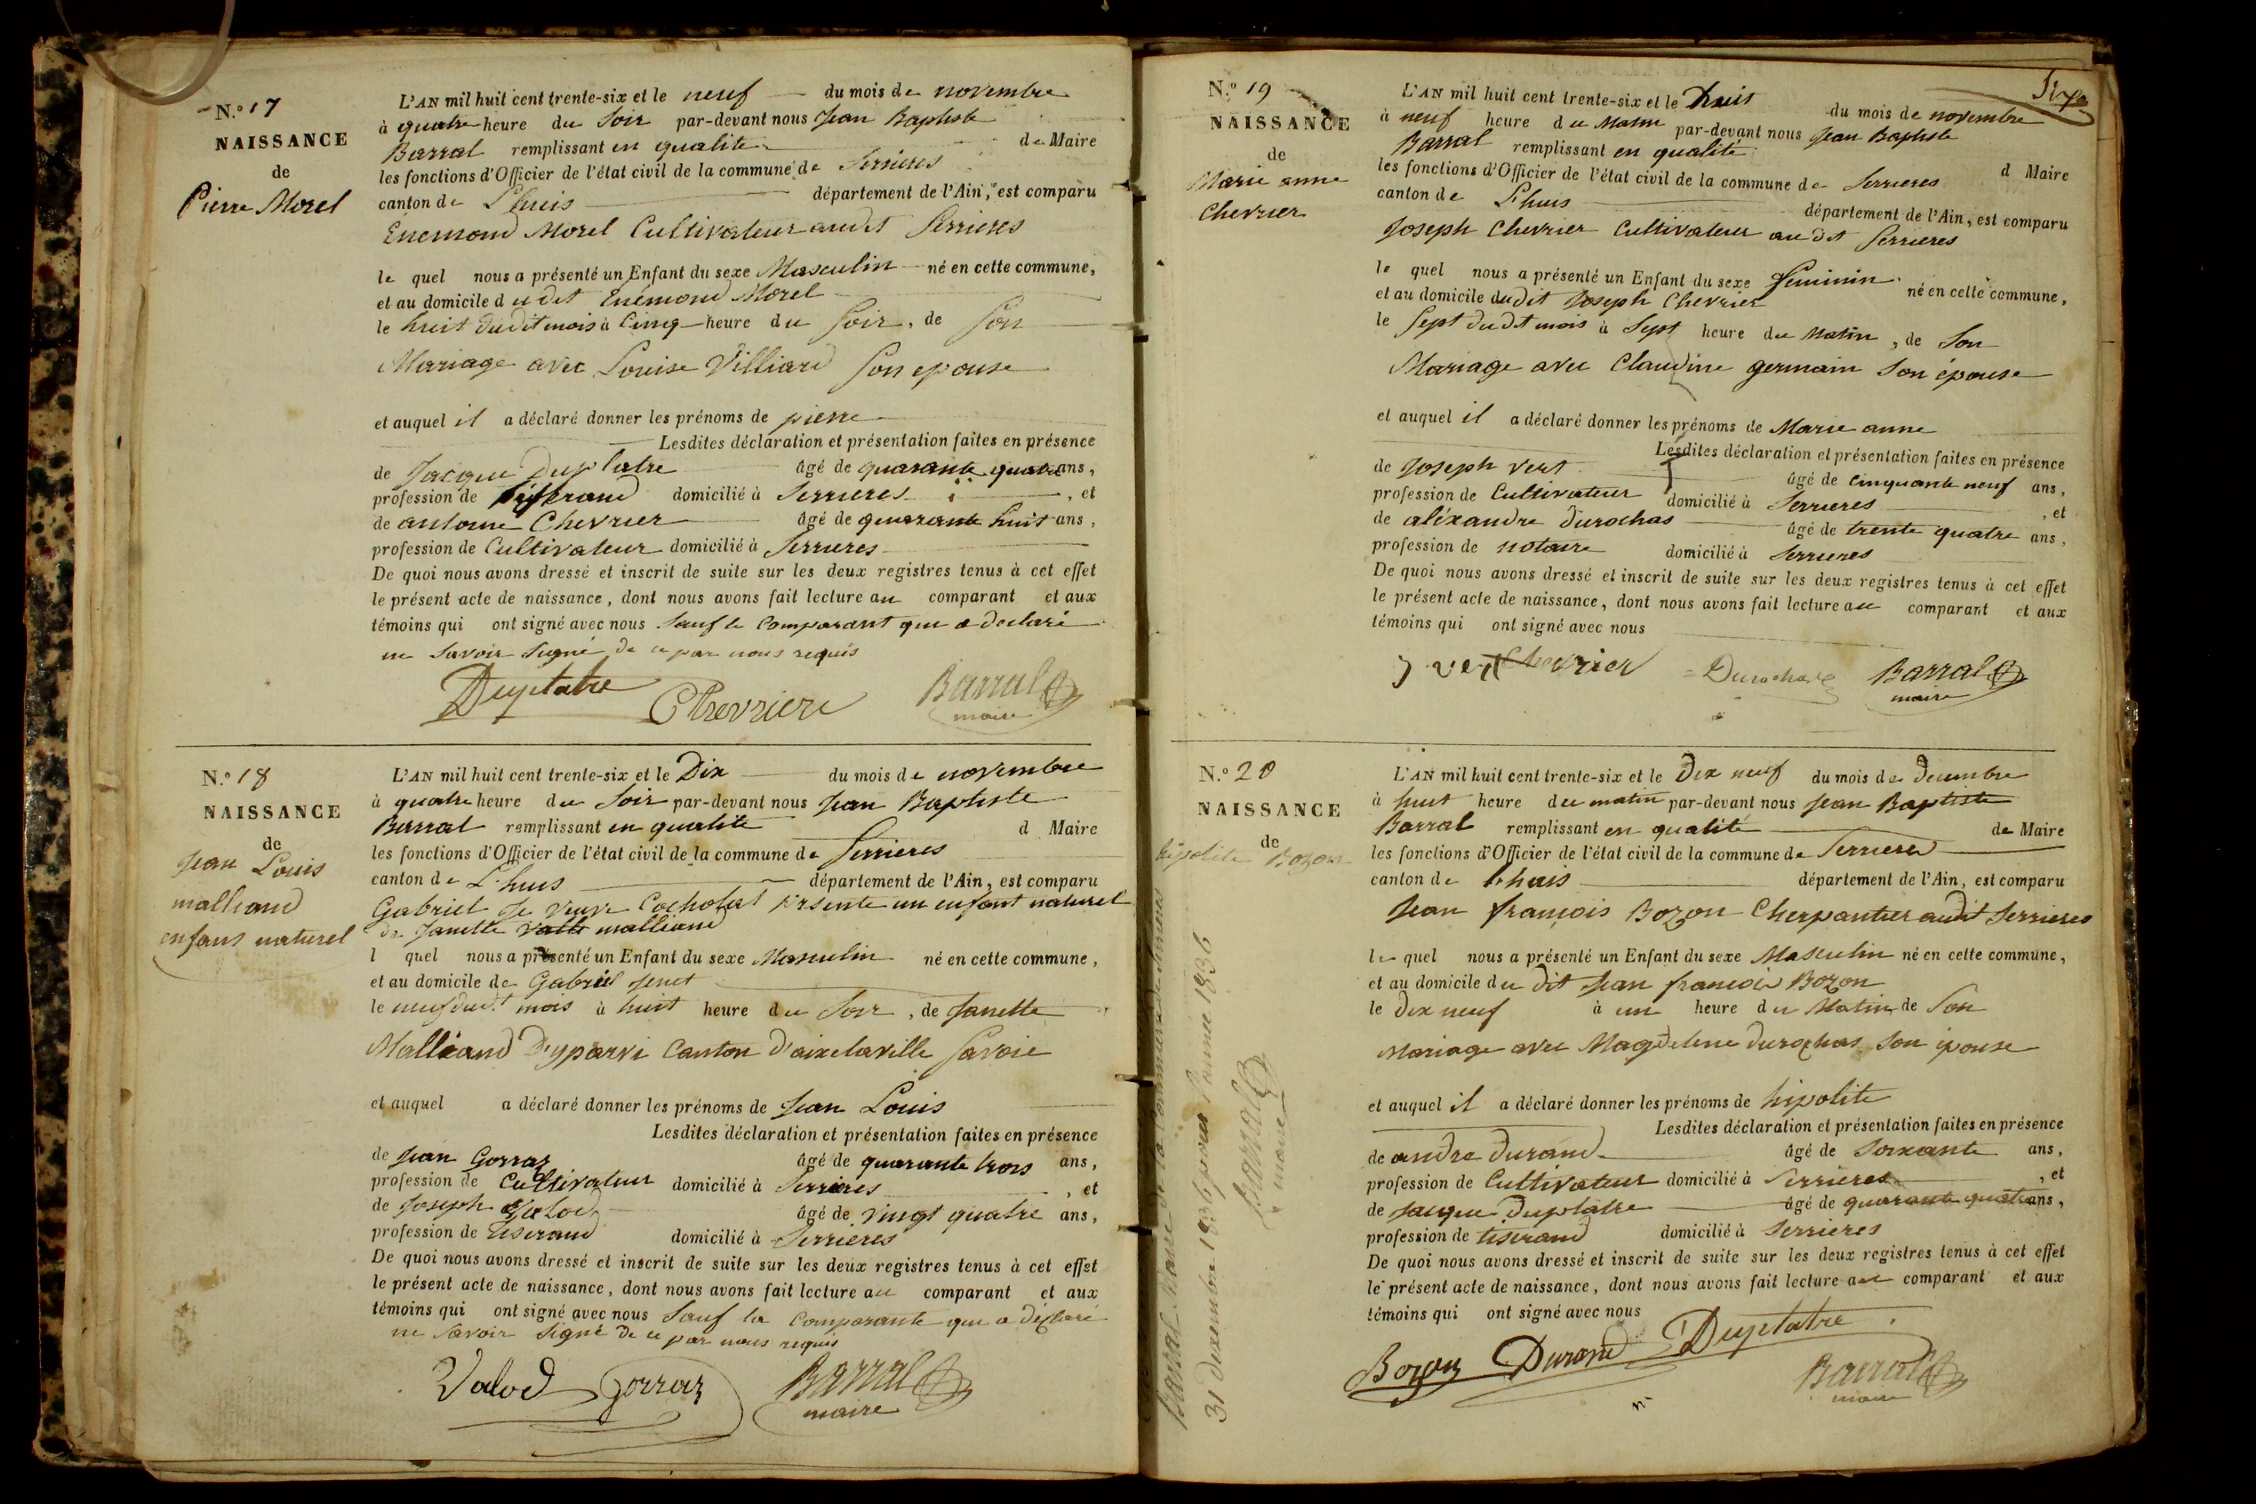 N.° 17
NAISSANCE
de
Pierre Morel
L'AN mil huit cent trente-six et le neuf du mois de novembre
à quatre heure du Soir par-devant nous Jean Baptiste
Barral remplissant en qualité de Maire
les fonctions d'Officier de l'état civil de la commune de Serrieres
canton de L'huis département de l'Ain, est comparu
Enemond Morel Cultivateur audit Serrieres
le quel nous a présenté un Enfant du sexe Masculin né en cette commune,
et au domicile du dit Enemond Morel
le huit dudit mois à Cinq heure du Soir, de Son
Mariage avec Louise Villiard Son epouse
et auquel il a déclaré donner les prénoms de pierre
Lesdites déclaration et présentation faites en présence
de Jacque Duplatre âgé de quarante quatre ans,
profession de tisserand domicilié à Serrieres, et
de antoine Chevrier âgé de quarante huit ans,
profession de Cultivateur domicilié à Serrieres
De quoi nous avons dressé et inscrit de suite sur les deux registres tenus à cet effet
le présent acte de naissance, dont nous avons fait lecture au comparant et aux
témoins qui ont signé avec nous Sauf le Comparant qui a declaré
ne Savoir Signé de ce par nous requis
Duplatre Chevrier Barral
maire
N.° 18
NAISSANCE
de
Jean Louis
malliand
enfans naturel
L'AN mil huit cent trente-six et le Dix du mois de novembre
à quatre heure du Soir par-devant nous Jean Baptiste
Barral remplissant en qualité d Maire
les fonctions d'Officier de l'état civil de la commune de Serrieres
canton de L'huis département de l'Ain, est comparu
Gabriel veuve un enfant naturel
de Janette malliand
l quel nous a présenté un Enfant du sexe Masculin né en cette commune,
et au domicile de Gabriel
le neuf dudt mois à huit heure du Soir, de Janette
Malliand D'yparvi Canton d'aixelaville Savoie
et auquel a déclaré donner les prénoms de Jean Louis
Lesdites déclaration et présentation faites en présence
de Jean Gorraz âgé de quarante trois ans,
profession de Cultivateur domicilié à Serrieres, et
de Joseph Valod âgé de vingt quatre ans,
profession de Tiserand domicilié à Serrieres
De quoi nous avons dressé et inscrit de suite sur les deux registres tenus à cet effet
le présent acte de naissance, dont nous avons fait lecture au comparant et aux
témoins qui ont signé avec nous Sauf la Comparante qui a déclaré
ne Savoir Signé de ce par nous requis
Valod Gorraz Barral
maire
N.° 19
NAISSANCE
de
Marie anne
Chevrier
L'AN mil huit cent trente-six et le huit du mois de novembre
à neuf heure du Matin par-devant nous Jean Baptiste
Barral remplissant en qualité d Maire
les fonctions d'Officier de l'état civil de la commune de Serrieres
canton de L'huis département de l'Ain, est comparu
Joseph Chevrier Cultivateur au dit Serrieres
le quel nous a présenté un Enfant du sexe Feminin né en cette commune,
et au domicile dudit Joseph Chevrier
le Sept du dit mois à Sept heure du Matin, de Son
Mariage avec Claudine germain Son épouse
et auquel il a déclaré donner les prénoms de Marie anne
Lesdites déclaration et présentation faites en présence
de Joseph vert âgé de Cinquante neuf ans,
profession de Cultivateur domicilié à Serrieres, et
de aléxandre Durochas âgé de trente quatre ans,
profession de notaire domicilié à Serrieres
De quoi nous avons dressé et inscrit de suite sur les deux registres tenus à cet effet
le présent acte de naissance, dont nous avons fait lecture au comparant et aux
témoins qui ont signé avec nous
J vert Chevrier Durochas Barral
maire
N.° 20
NAISSANCE
de
hipolite Bozon
L'AN mil huit cent trente-six et le Dix neuf du mois de Decembre
à huit heure du matin par-devant nous Jean Baptiste
Barral remplissant en qualité de Maire
les fonctions d'Officier de l'état civil de la commune de Serrieres
canton de L'huis département de l'Ain, est comparu
Jean françois Bozon Cherpantier audit Serrieres
le quel nous a présenté un Enfant du sexe Masculin né en cette commune,
et au domicile du dit Jean francois Bozon
le Dix neuf à un heure du Matin de Son
Mariage avec Magdelene Durochas Son épouse
et auquel il a déclaré donner les prénoms de hipolite
Lesdites déclaration et présentation faites en présence
de andre Durand âgé de Soixante ans,
profession de Cultivateur domicilié à Serrieres, et
de Jacque Duplatre âgé de quarante quatre ans,
profession de tiserand domicilié à Serrieres
De quoi nous avons dressé et inscrit de suite sur les deux registres tenus à cet effet
le présent acte de naissance, dont nous avons fait lecture au comparant et aux
témoins qui ont signé avec nous
Bozon Durand Duplatre
Barral
maire
31 Dexembre 1836 l'année 1836
Barral
maire